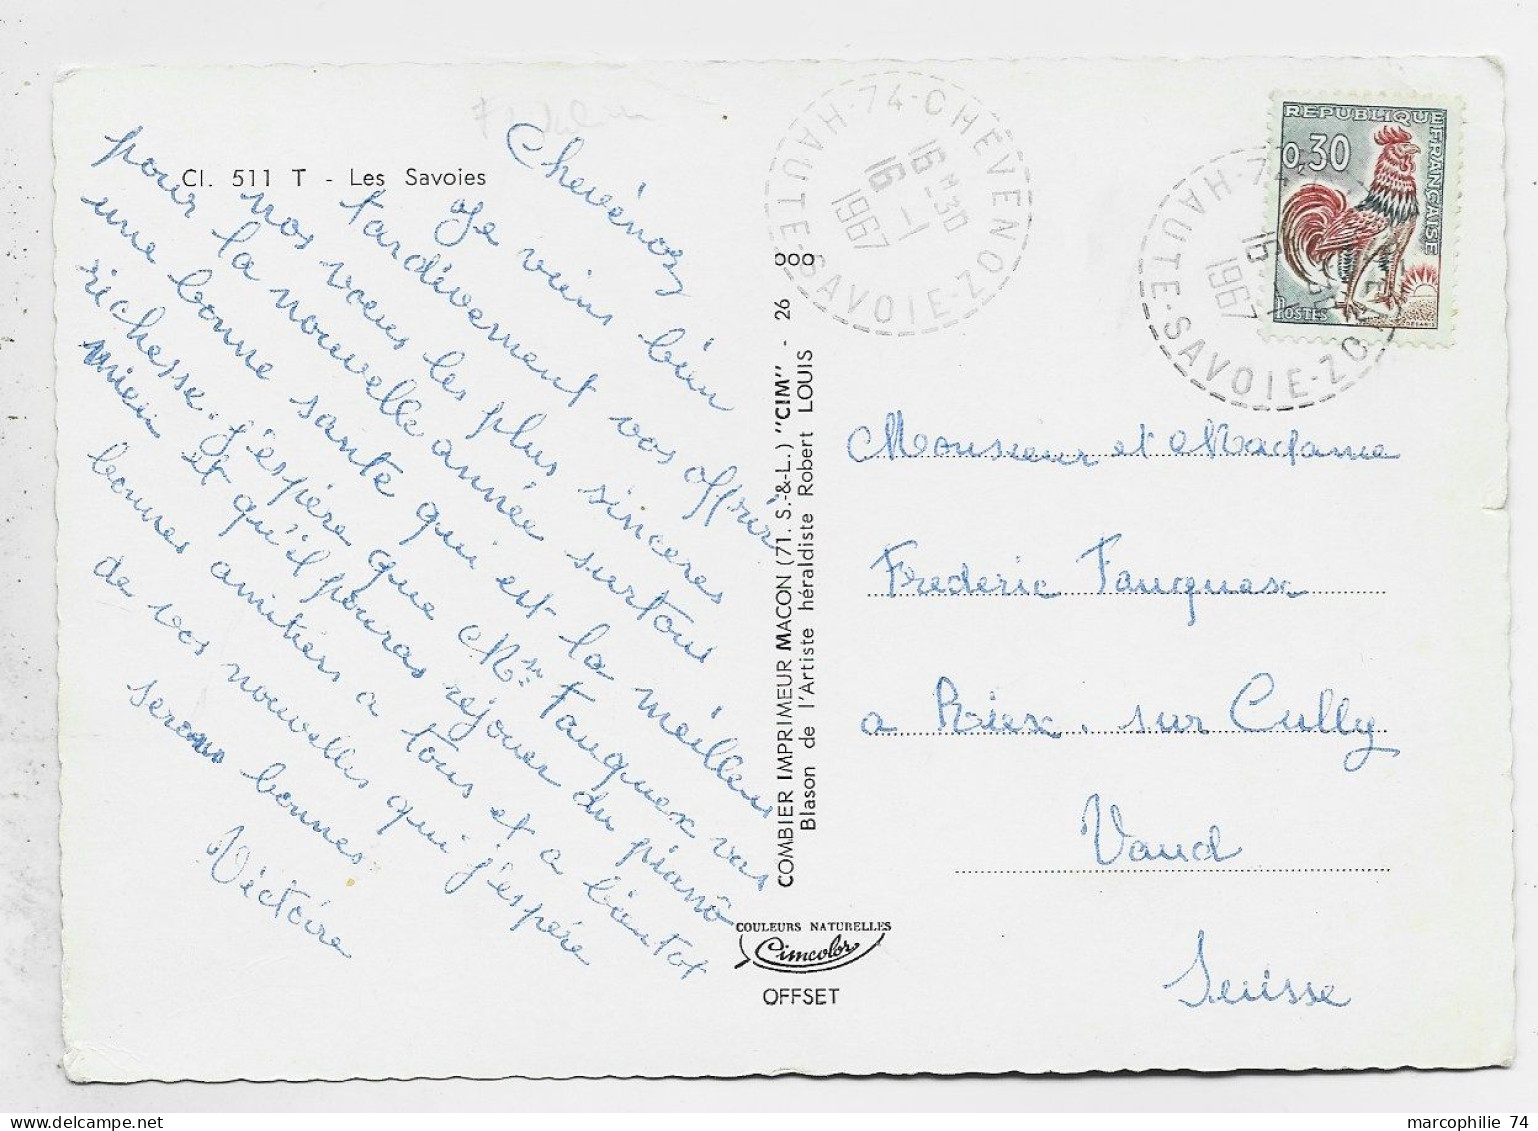 Cl. 511 T - Les Savoies
Chevénoz
Je viens bien
tardivement vos offrir
nos voeus les plus sinceres
pour la nouvelle année surtous
une bonne sante qui est la meilleur
richesse. J'éspére que Mr Fauquex vas
mieu et qu'il pouras rejouer du pianô
bonnes amitiés a tous et a bientot
de vos nouvelles qui j'espére
serons bonnes
Victoire
COMBIER IMPRIMEUR MACON (71. S.-&-L.) "CIM" - 26 000
Blason de l'Artiste héraldiste Robert LOUIS
COULEURS NATURELLES
Cimcolor
OFFSET
74-CHEVENOZ
HAUTE-SAVOIE
16 H 30
16 -1
1967
REPUBLIQUE FRANÇAISE
0,30
POSTES
DECARIS
74
HAUTE-SAVOIE
16
1967
Monsieur et Madame
Frederic Fauquex
a Riex. sur Cully
Vaud
Suisse
marcophilie 74